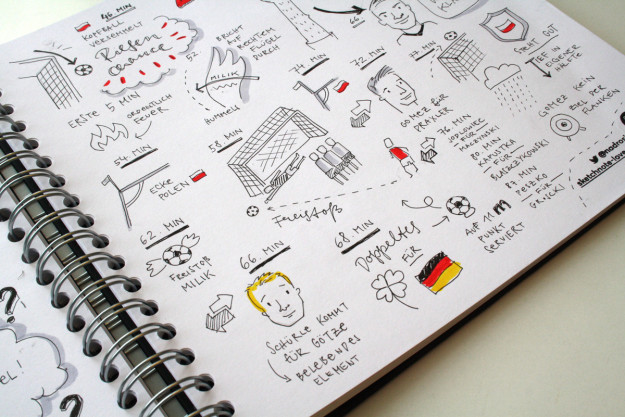 46 MIN
KOPFBALL
VERSEMMELT
Riesen
chance
ERSTE 5 MIN
ORDENTLICH
FEUER
52
BRICHT
AUF
RECHTEM
FLÜGEL
DURCH
MILIK
HUMMELT
54 MIN
ECKE
POLEN
58 MIN
Freistoß
62 MIN
FREISTOß
MILIK
66 MIN
SCHÜRLE KOMMT
FÜR GÖTZE
BELEBENDES
ELEMENT
68 MIN
Doppeltes
FÜR
66
72 MIN
GOMEZ FÜR
DRAXLER
76 MIN
JODLOWIEC
FÜR
MACZYNSKI
80 MIN
KAPUSTKA
FÜR
BLASZCZYKOWSKI
87 MIN
PESZKO
FÜR
GRICKI
77 MIN
STEHT GUT
TIEF IN
EIGENER
HÄLFTE
GOMEZ KEIN
ZIEL DER
FLANKEN
AUF 11 M
PUNKT
SERVIERT
sketchnote-love